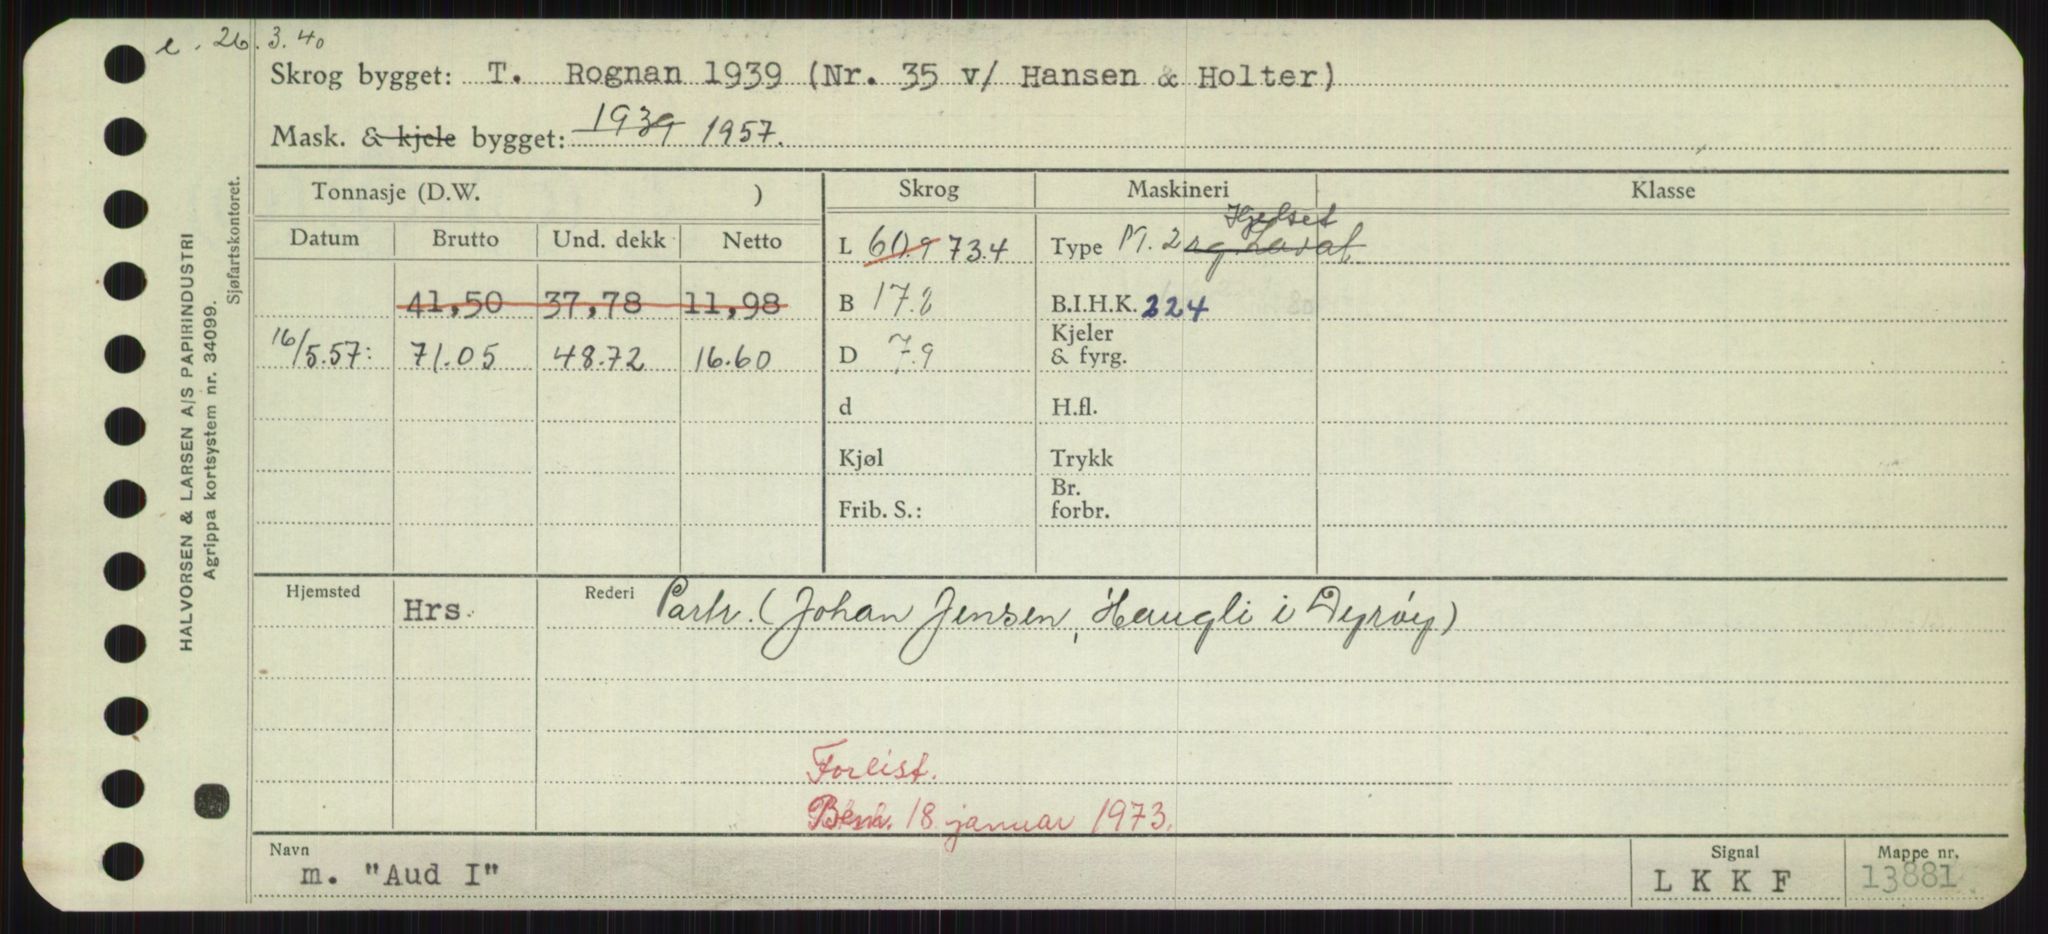 e. 26.3.40
Skrog bygget: T. Rognan 1939 (Nr. 35 v/ Hansen & Holter)
Mask. & kjele bygget: 1939 1957.
Tonnasje (D.W. ) Skrog Maskineri Klasse
Datum Brutto Und. dekk Netto
L 60.9 73.4 Type M. 2 sg Laval Hjelset
41,50 37,78 11,98 B 17.2 B.I.H.K. 224
16/5.57: 71.05 48.72 16.60 D 7.9 Kjeler & fyrg.
d H.fl.
Kjøl Trykk
Frib. S.: Br. forbr.
Hjemsted Hrs. Rederi Partr. (Johan Jensen, Haugli i Dyrøy)
Forlist.
18 januar 1973.
Navn Signal Mappe nr.
m. "Aud I" L K K F 13881
HALVORSEN & LARSEN A/S PAPIRINDUSTRI
Agrippa kortsystem nr. 34099.
Sjøfartskontoret.